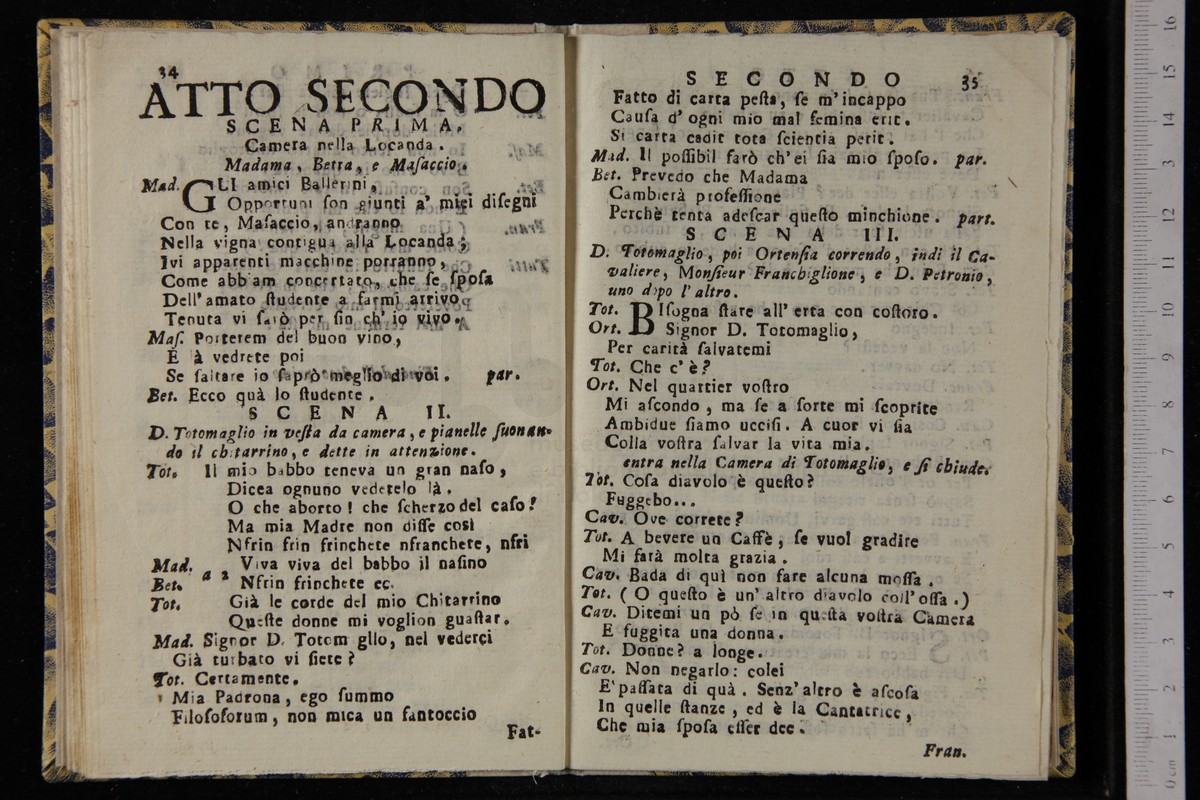 34
ATTO SECONDO
SCENA PRIMA.
Camera nella Locanda.
Madama, Betta, e Masaccio.
Mad. GLI amici Ballerini,
Opportuni ſon giunti a' miei diſegni
Con te, Maſaccio, andranno
Nella vigna contigua alla Locanda;
Ivi apparenti macchine porranno,
Come abbiam concertato, che ſe ſpoſa
Dell'amato ſtudente a farmi arrivo
Tenuta vi ſarò per fin ch'io vivo.
Maſ. Porterem del buon vino,
E là vedrete poi
Se ſaltare io ſaprò meglio di voi. par.
Bet. Ecco quà lo ſtudente.
SCENA II.
D. Totomaglio in veſta da camera, e pianelle ſuonan-
do il chitarrino, e dette in attenzione.
Tot. Il mio babbo teneva un gran naſo,
Dicea ognuno vedetelo là.
O che aborto! che ſcherzo del caſo!
Ma mia Madre non diſſe così
Nfrin frin frinchete nfranchete, nfri
Mad. Viva viva del babbo il naſino
Bet. a 2 Nfrin frinchete ec.
Tot. Già le corde del mio Chitarrino
Queſte donne mi voglion guaſtar.
Mad. Signor D. Totom glio, nel vederci
Già turbato vi ſiete?
Tot. Certamente.
Mia Padrona, ego ſummo
Filoſoforum, non mica un fantoccio
Fat-
SECONDO 35
Fatto di carta peſta, ſe m'incappo
Cauſa d'ogni mio mal femina erit.
Si carta cadit tota ſcientia perit.
Mad. Il poſſibil farò ch'ei ſia mio ſpoſo. par.
Bet. Prevedo che Madama
Cambierà profeſſione
Perchè tenta adeſcar queſto minchione. part.
SCENA III.
D. Totomaglio, poi Ortenſia correndo, indi il Ca-
valiere, Monſieur Franchiglione, e D. Petronio,
uno dopo l'altro.
Tot. BIſogna ſtare all'erta con coſtoro.
Ort. Signor D. Totomaglio,
Per carità ſalvatemi
Tot. Che c'è?
Ort. Nel quartier voſtro
Mi aſcondo, ma ſe a ſorte mi ſcoprite
Ambidue ſiamo ucciſi. A cuor vi ſia
Colla voſtra ſalvar la vita mia.
entra nella Camera di Totomaglio, e ſi chiude.
Tot. Coſa diavolo è queſto?
Fuggebo...
Cav. Ove correte?
Tot. A bevere un Caffè, ſe vuol gradire
Mi farà molta grazia.
Cav. Bada di quì non fare alcuna moſſa.
Tot. (O queſto è un'altro diavolo coll'oſſa.)
Cav. Ditemi un pò ſe in queſta voſtra Camera
E fuggita una donna.
Tot. Donne? a longe.
Cav. Non negarlo: colei
E' paſſata di quà. Senz'altro è aſcoſa
In quelle ſtanze, ed è la Cantatrice,
Che mia ſpoſa eſſer dee.
Fran.